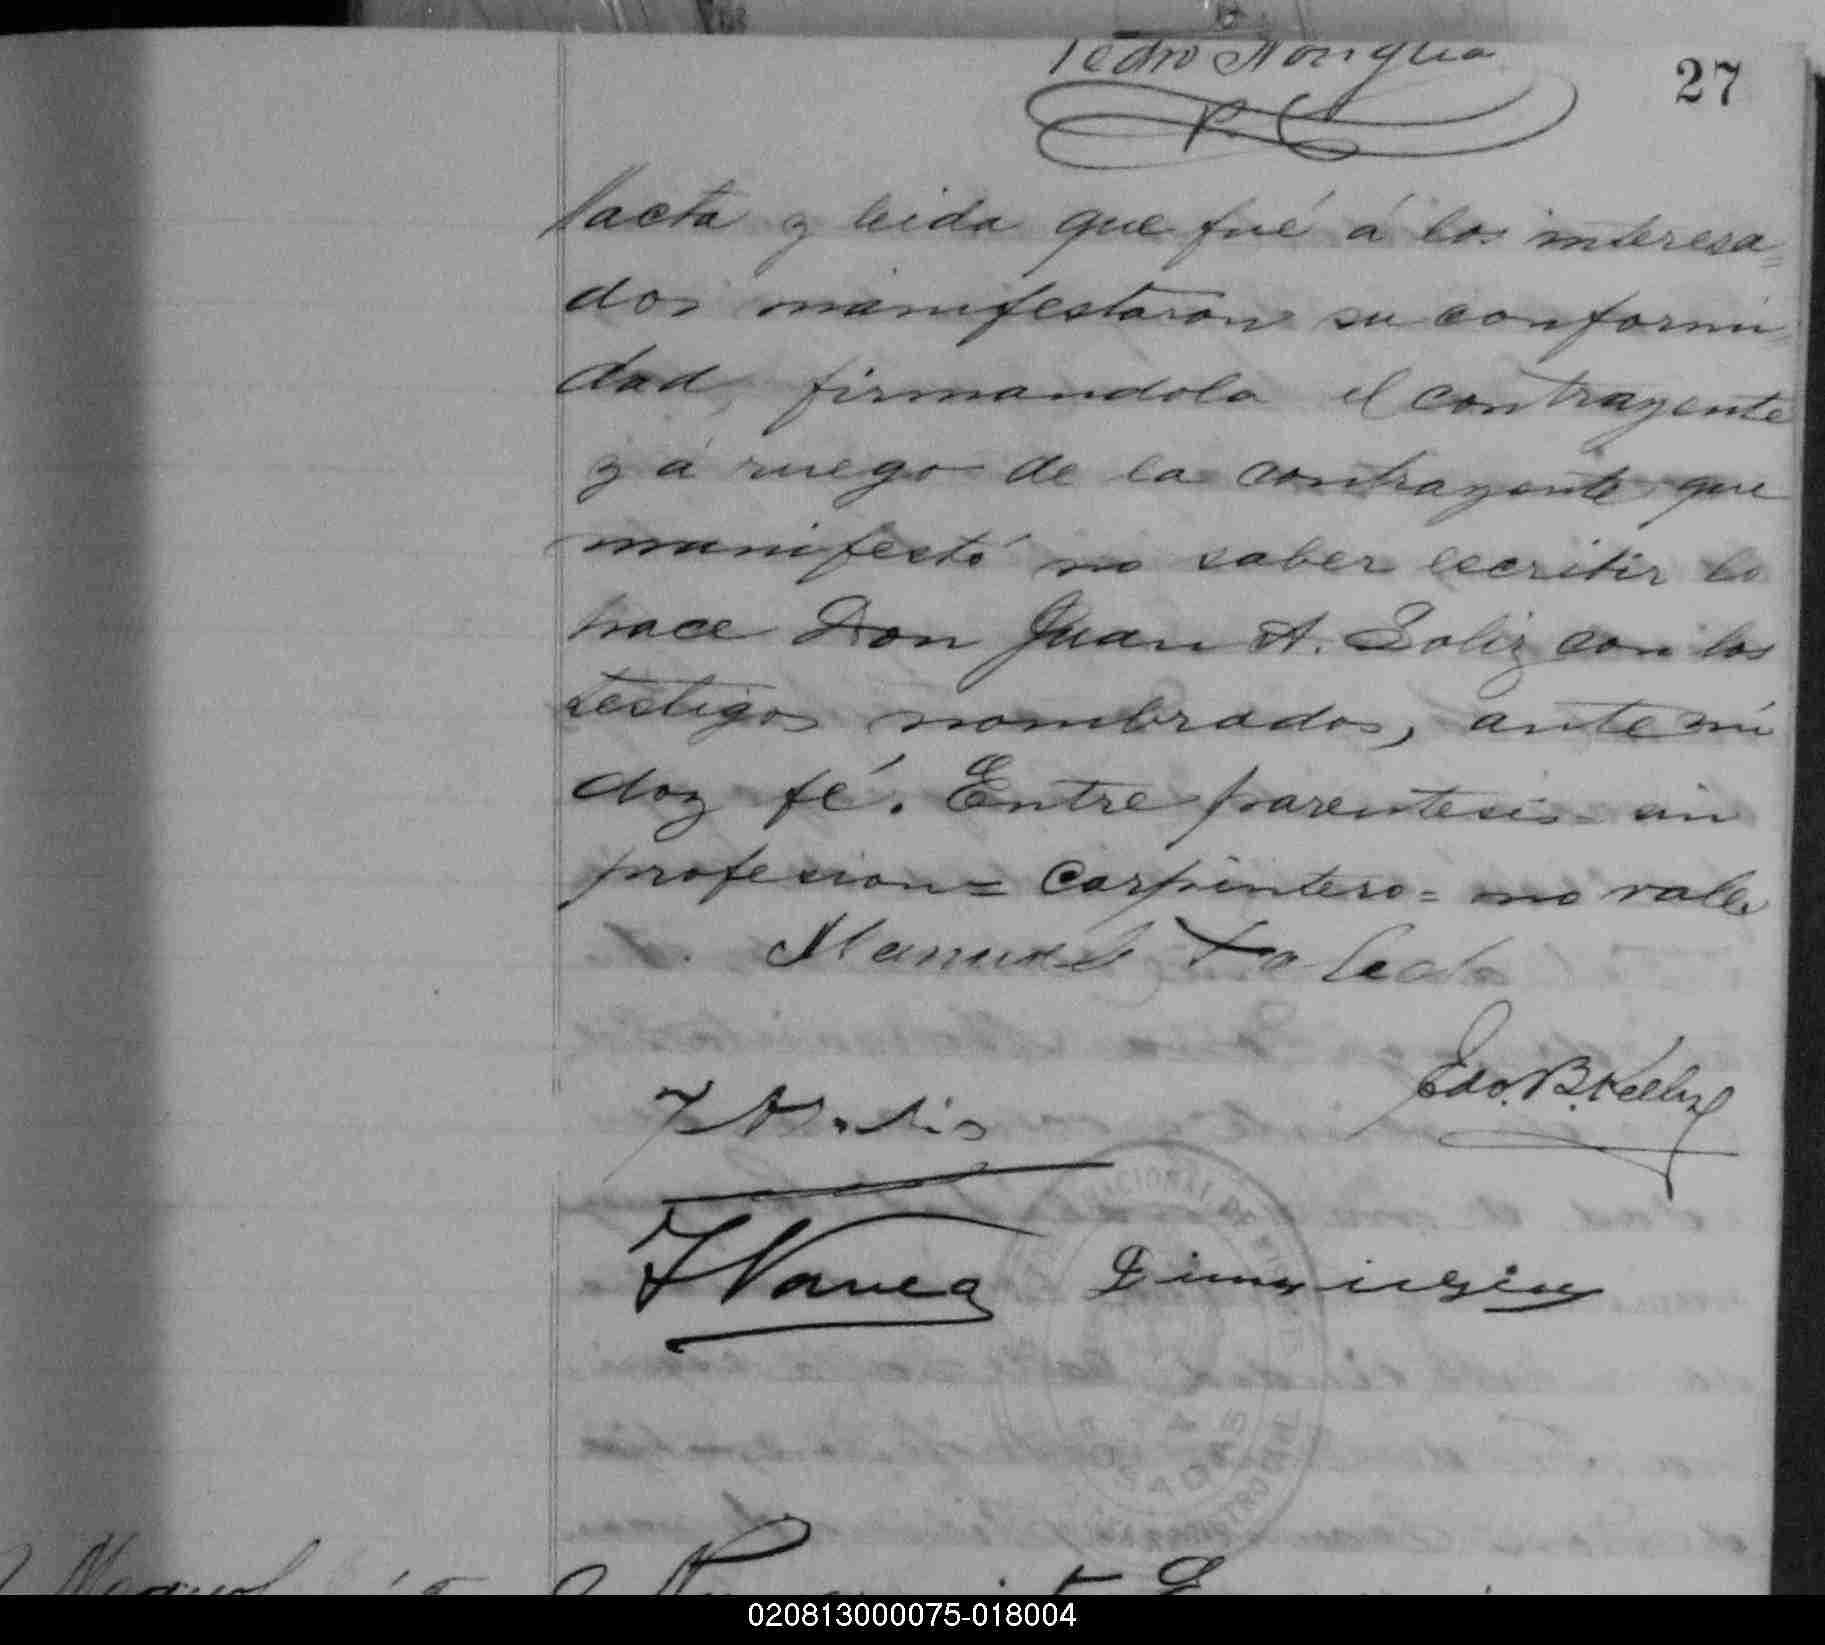 Pedro
27
acta y leida que fué á los interesa=
dos manifestaron su conformi=
dad, firmandola el contrayente
y á ruego de la contrayente que
manifestó no saber escribir lo
hace Don Juan A. Soliz con los
testigos nombrados, ante mi
doy fé. Entre parentesis - sin
profesion = carpintero = no vale
Manuel Toledo
Edo. B. Kelly
020813000075-018004